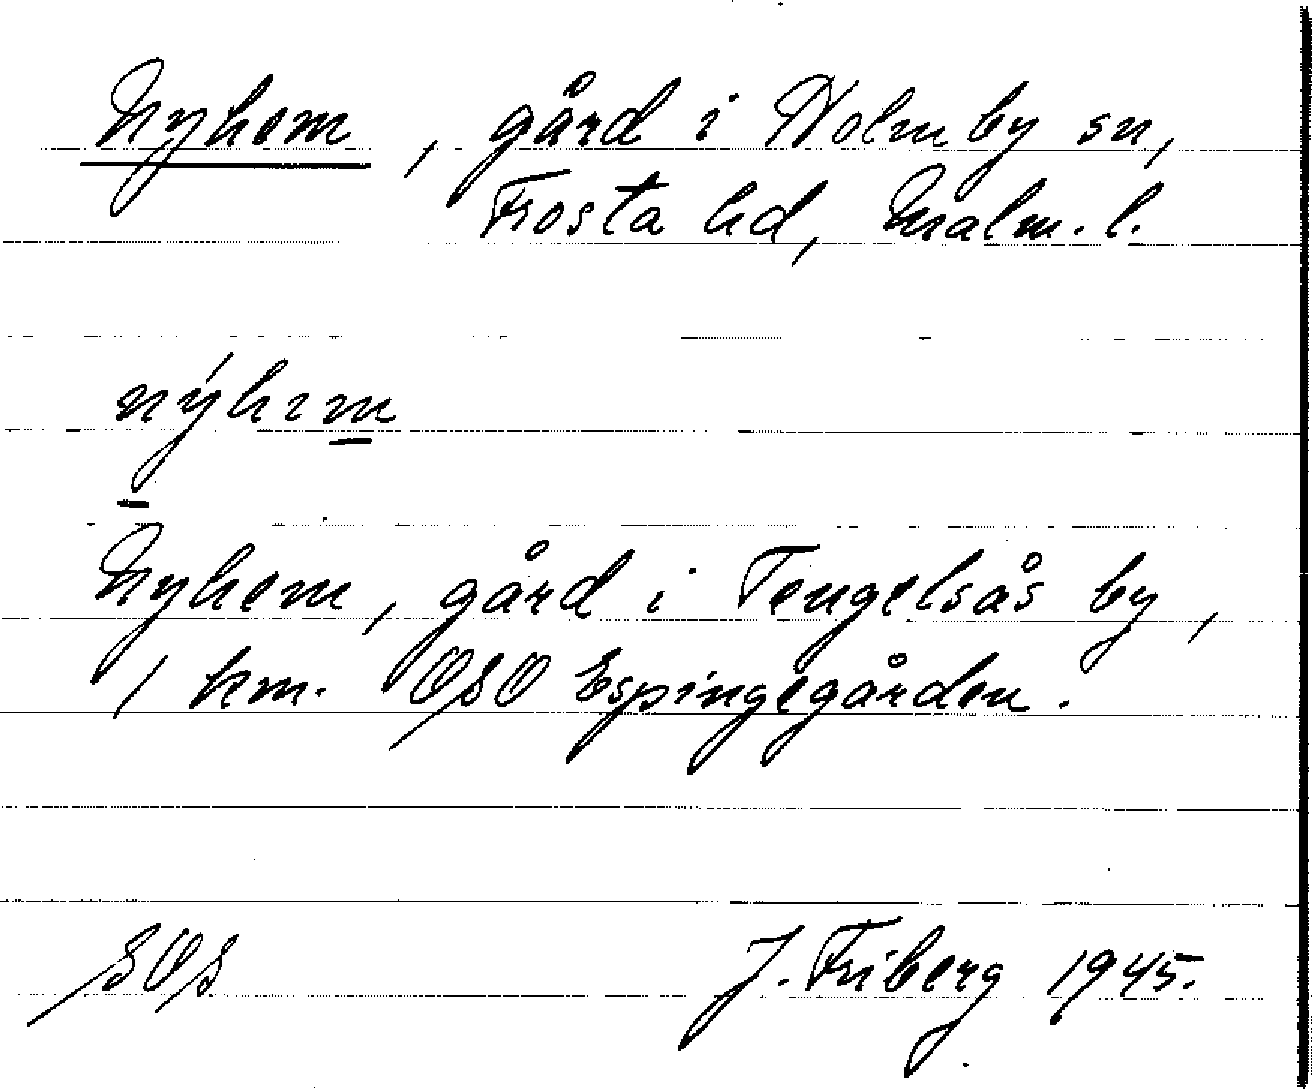 Nyhem, gård i Holmby sn,
Frosta hd, Malm. l.
Nyhem, gård i Tengelsås by,
1 km. OSO Espingegården.
SOS
J. Friberg 1945.